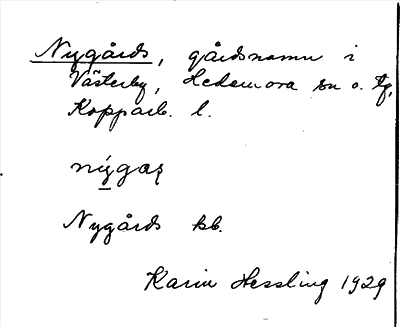 Nygårds, gårdsnamn i
Västerby, Hedemora sn o. tg,
Kopparb. l.
nýgaʂ
Nygårds kb.
Karin Hessling 1929